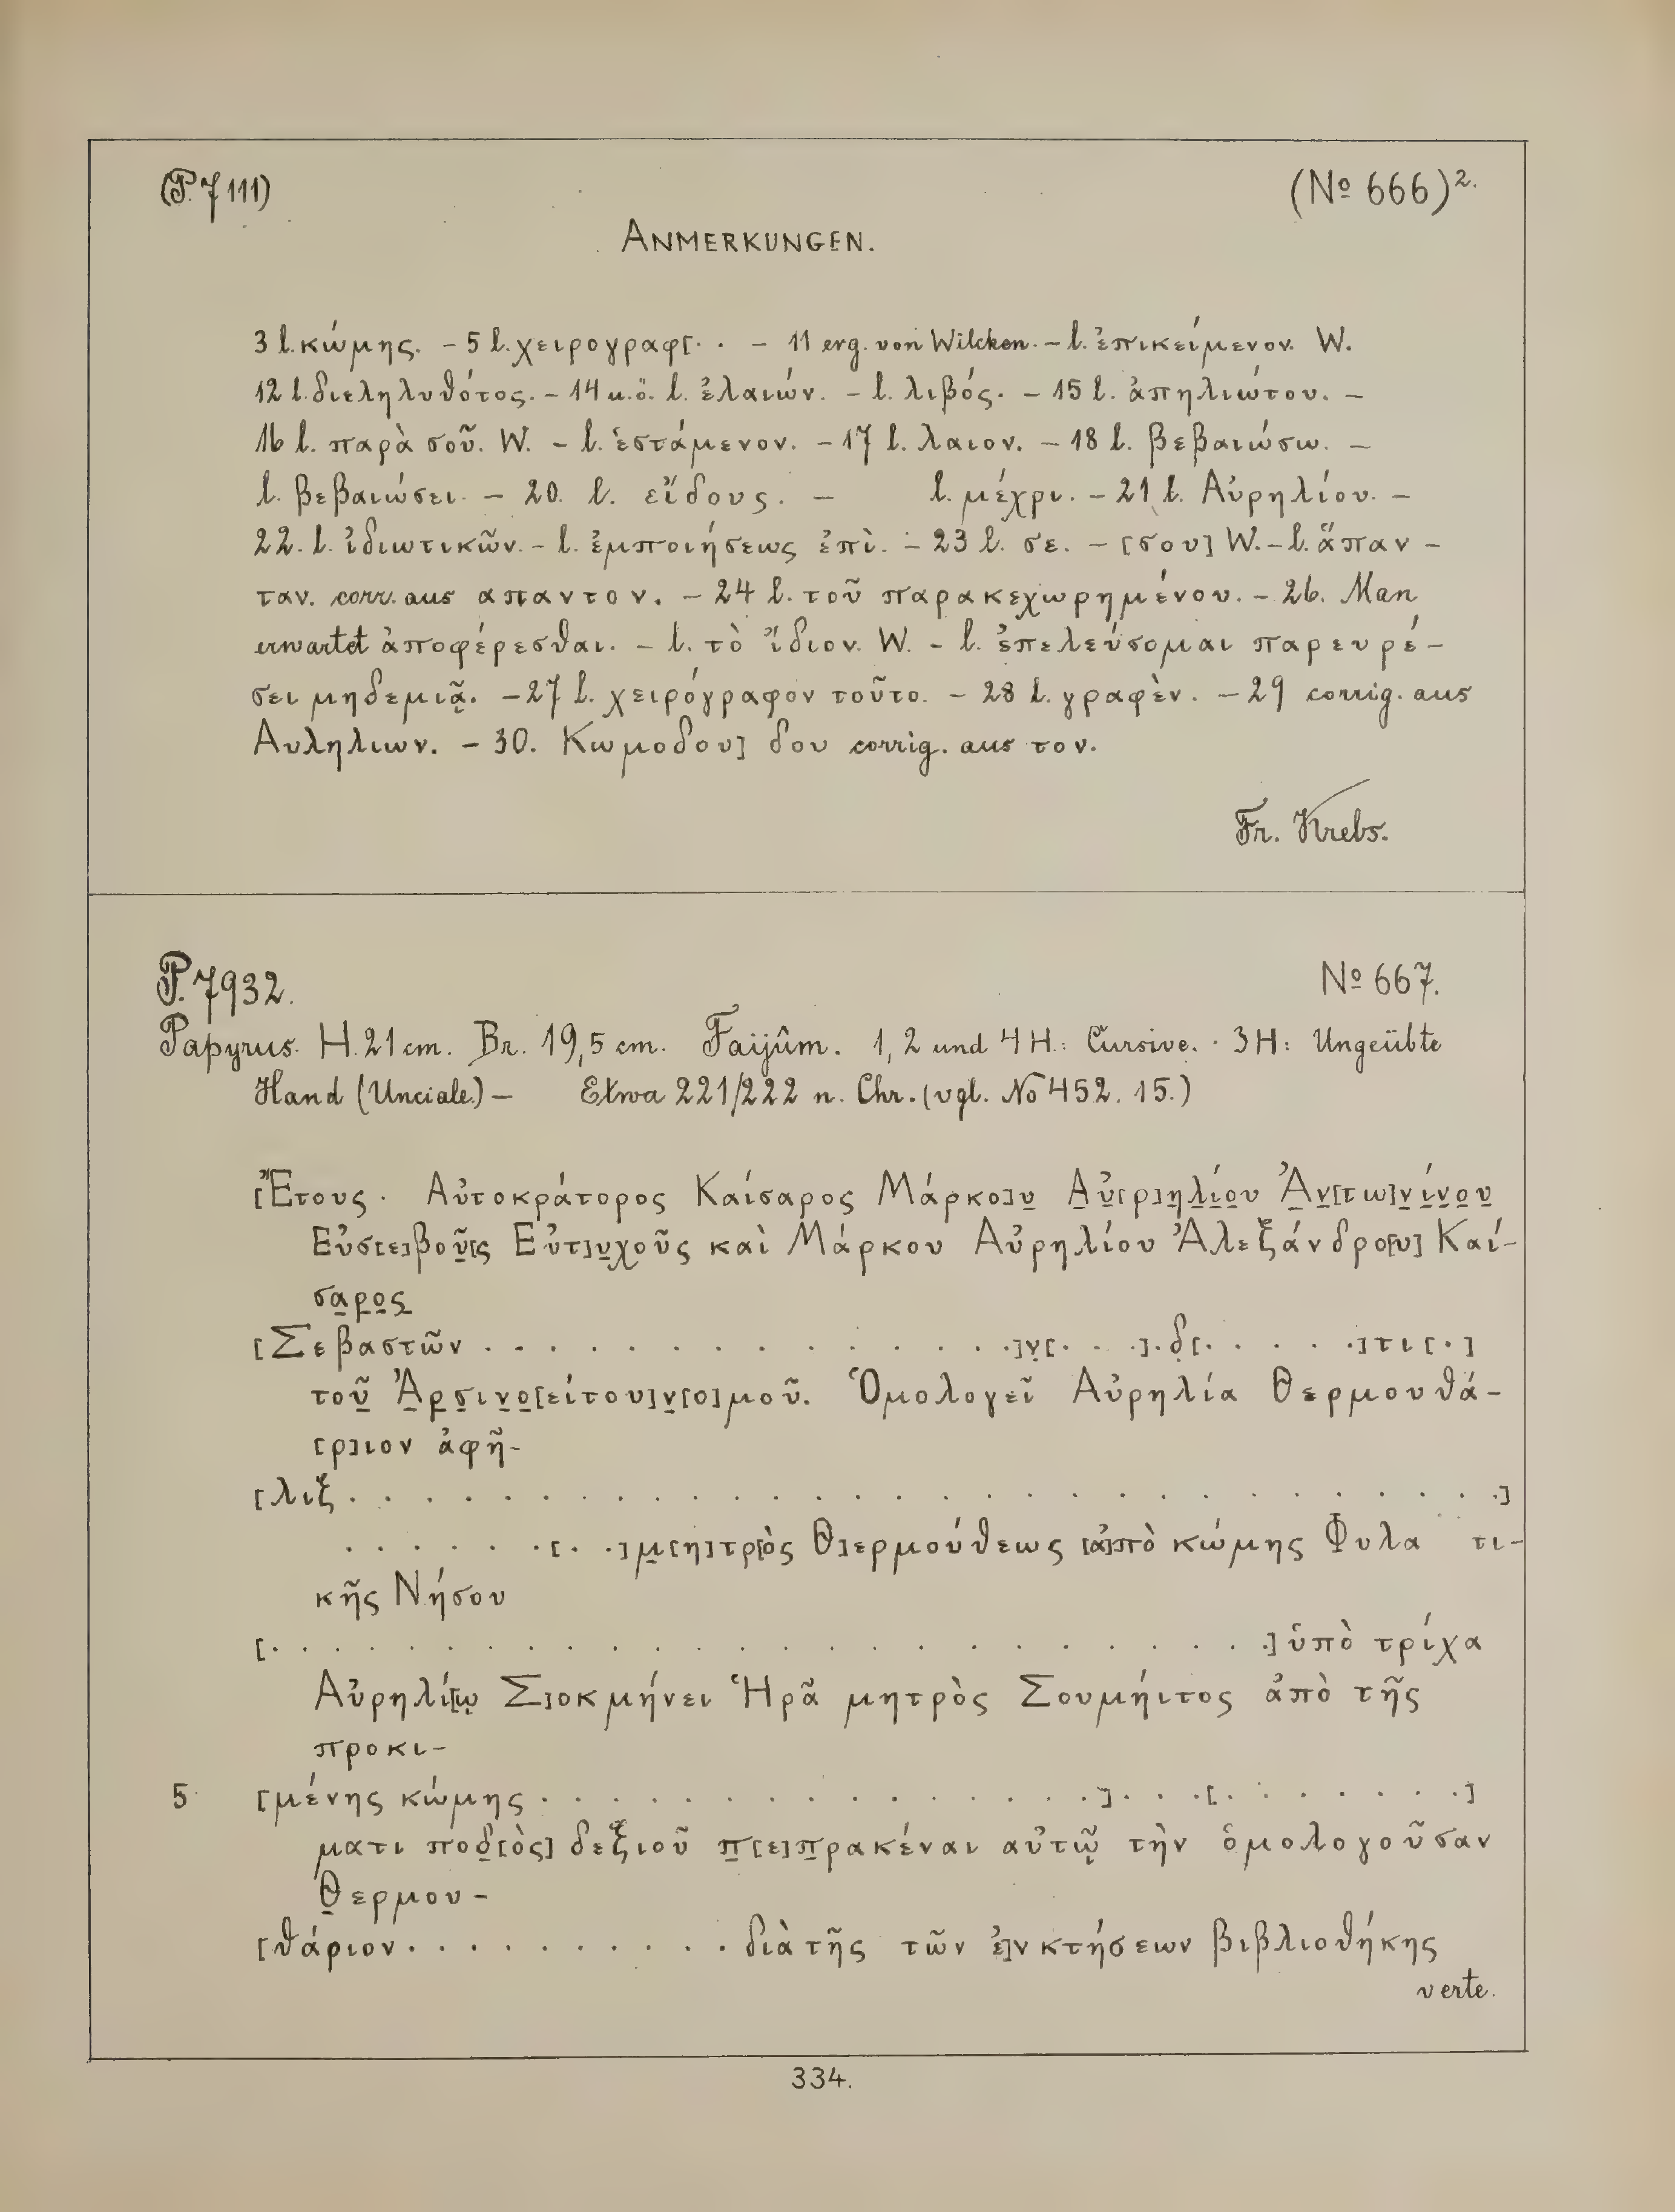 (P. 7111) (No 666)2.
ANMERKUNGEN.
3 l. κώμης. – 5 l. χειρογραφ[. . – 11 erg. von Wilcken. – l. ἐπικείμενον. W.
12 l. διεληλυθότος. – 14 u. ö. l. ἐλαιών. – l. λιβός. – 15 l. ἀπηλιώτου. –
16 l. παρὰ σοῦ. W. – l. ἑστάμενον. – 17 l. λαιον. – 18 l. βεβαιώσω. –
l. βεβαιώσει. – 20. l. εἴδους. – l. μέχρι. – 21 l. Αὐρηλίου. –
22. l. ἰδιωτικῶν. – l. ἐμποιήσεως ἐπὶ. – 23 l. σε. – [σου] W. – l. ἅπαν –
ταν. corr. aus απαντον. – 24 l. τοῦ παρακεχωρημένου. – 26. Man
erwartet ἀποφέρεσθαι. – l. τὸ ἴδιον. W. – l. ἐπελεύσομαι παρευρέ–
σει μηδεμιᾷ. – 27 l. χειρόγραφον τοῦτο. – 28 l. γραφὲν. – 29 corrig. aus
Αυληλιων. – 30. Κωμοδου] δου corrig. aus τον.
Fr. Krebs.
P. 7932. No 667.
Papyrus. H. 21 cm. Br. 19,5 cm. Faijûm. 1, 2 und 4 H.: Cursive. · 3 H: Ungeübte
Hand (Unciale.) – Etwa 221/222 n. Chr. (vgl. No 452. 15.)
[Ἔτους · Αὐτοκράτορος Καίσαρος Μάρκο]υ̣ Α̣ὐ̣[ρ]η̣λ̣ί̣ο̣υ Ἀ̣ν̣[τω]ν̣ί̣ν̣ο̣υ̣
Εὐσ[ε]βοῦ̣[ς Εὐτ]υ̣χοῦς καὶ Μάρκου Αὐρηλίου Ἀλεξάνδρο[υ] Καί–
σα̣ρ̣ο̣ς̣
[Σεβαστῶν . . . . . . . . . . . . . .]γ̣[. . .].δ̣[. . . . .]τι[.]
τοῦ̣ Ἀ̣ρ̣σ̣ιν̣ο̣[είτου]ν̣[ο]μοῦ. Ὁμολογεῖ Αὐρηλία Θερμουθά–
[ρ]ιον ἀφῆ–
[λιξ . . . . . . . . . . . . . . . . . . . . . . .]
. . . . . .[. .]μ̣[η]τρ[ὸς Θ]ερμούθεως [ἀ]πὸ κώμης Φυλα τι–
κῆς Νήσου
[. . . . . . . . . . . . . . . . . . . .] ὑπὸ τρίχα
Αὐρηλί[ῳ Σ]οκμήνει Ἡρᾶ μητρὸς Σουμήιτος ἀπὸ τῆς
προκι–
5 [μένης κώμης . . . . . . . . . . . . .]. . .[. . . . . . .]
ματι ποδ̣[ὸς] δεξιοῦ π̣[ε]π̣ρακέναι αὐτῷ τὴν ὁμολογοῦσαν
Θ̣ερμου –
[θάριον . . . . . . . . . . διὰ τῆς τῶν ἐ]ν κτήσεων βιβλιοθήκης
verte.
334.